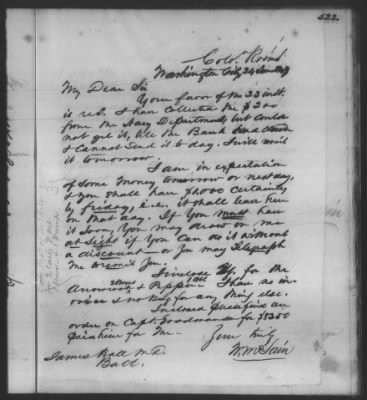 522
Colo. Rooms
Washington City 24
My Dear Sir
Your favor of the 23 inst.
is rec'd. I have collected the $200
from the Navy Department, but could
not get it, till the Bank
& cannot send it to day. I will mail
it tomorrow.
I am in expectation
of some money tomorrow or next day,
& you shall have certainly
by Friday, i.e. it shall leave here
on that day. If you must have
it sooner, you may draw on me
at sight if you can do it without
a discount or you may Telegraph
me to remit you.
I inclose for the
Arrowroot & Pepper. I have no in-
voice & no bill for any thing else.
Inclosed please find an
order on Capt. Goodmanson for $1350
for me.
Yours truly
W. McLain
James Hall M.D.
Balt.